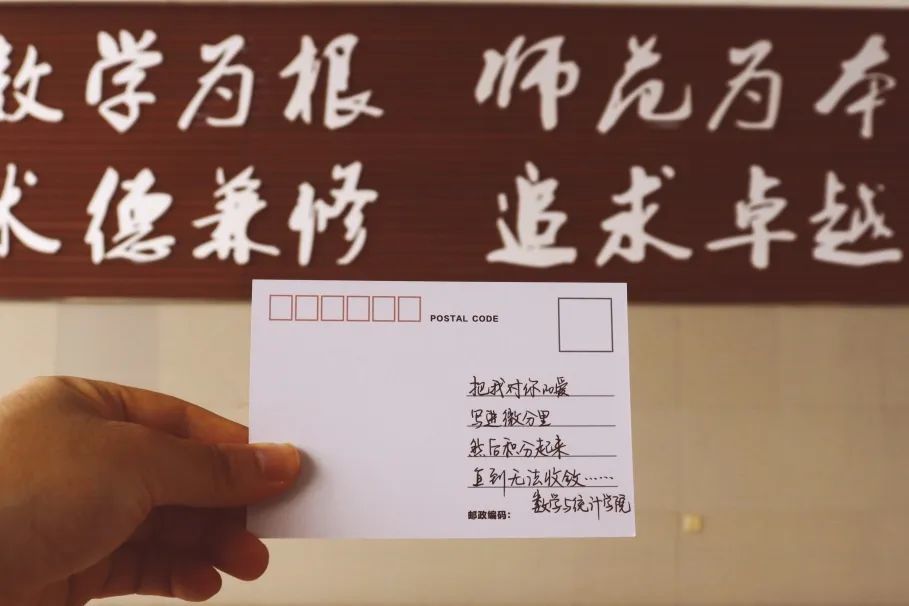 数学为根 师范为本
术德兼修 追求卓越
POSTAL CODE
把我对你的爱
写进微分里
然后积分起来
直到无法收敛……
数学与统计学院
邮政编码：